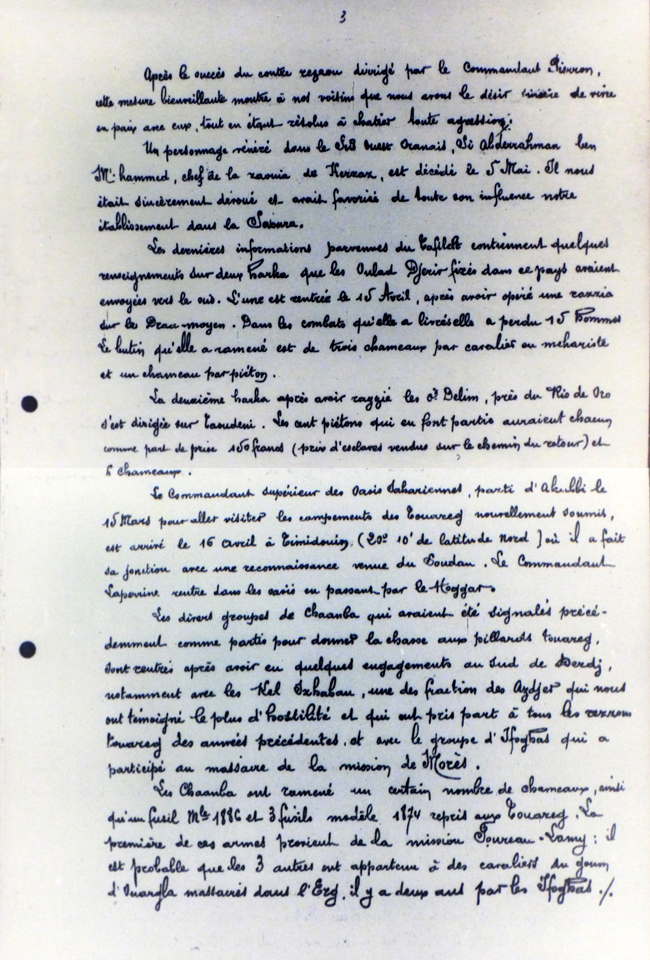 3
Après le succès du contre rezzou dirigé par le Commandant Pierron,
cette mesure bienveillante montre à nos voisins que nous avons le désir sincère de vivre
en paix avec eux, tout en étant résolus à chatier toute agression.
Un personnage vénéré dans le Sud Ouest Oranais, Si Abderrahman ben
M'hammed, chef de la zaouia de Kerzaz, est décédé le 5 Mai. Il nous
était sincèrement dévoué et avait favorisé de toute son influence notre
établissement dans la Saoura.
Les dernières informations parvenues du Tafilelt contiennent quelques
renseignements sur deux harka que les Oulad Djerir fixés dans ce pays avaient
envoyées vers le sud. L'une est rentrée le 15 Avril, après avoir opéré une razzia
sur le Draa-moyen. Dans les combats qu'elle a livrés elle a perdu 15 hommes
Le butin qu'elle a ramené est de trois chameaux par cavalier ou mehariste
et un chameau par piéton.
La deuxième harka après avoir razzié les Od Delim, près du Rio de Oro
s'est dirigée sur Taoudeni. Les cent piétons qui en font partie auraient chacun
comme part de prise 150 francs (prix d'esclaves vendus sur le chemin du retour) et
6 chameaux.
Le Commandant supérieur des Oasis Sahariennes, parti d'Akabli le
15 Mars pour aller visiter les campements des Touareg nouvellement soumis,
est arrivé le 16 avril à Timidouin, (20° 10' de latitude nord) où il a fait
sa jonction avec une reconnaissance venue du Soudan. Le Commandant
Laperrine rentre dans les oasis en passant par le Hoggar.
Les divers groupes de Chaanba qui avaient été signalés précé-
demment comme partis pour donner la chasse aux pillards touareg,
sont rentrés après avoir eu quelques engagements au sud de Derdj,
notamment avec les Kel Izhaban, une des fraction des Azdjer qui nous
ont témoigné le plus d'hostilité et qui ont pris part à tous les rezzous
touareg des années précédentes, et avec le groupe d'Ifoghas qui a
participé au massacre de la mission de Morès.
Les Chaanba ont ramené un certain nombre de chameaux, ainsi
qu'un fusil Mle 1886 et 3 fusils modèle 1874 repris aux Touareg. La
première de ces armes provient de la mission Foureau-Lamy; il
est probable que les 3 autres ont appartenu à des cavaliers du goum
d'Ouargla massacrés dans l'Erg, il y a deux ans par les Ifoghas ./.